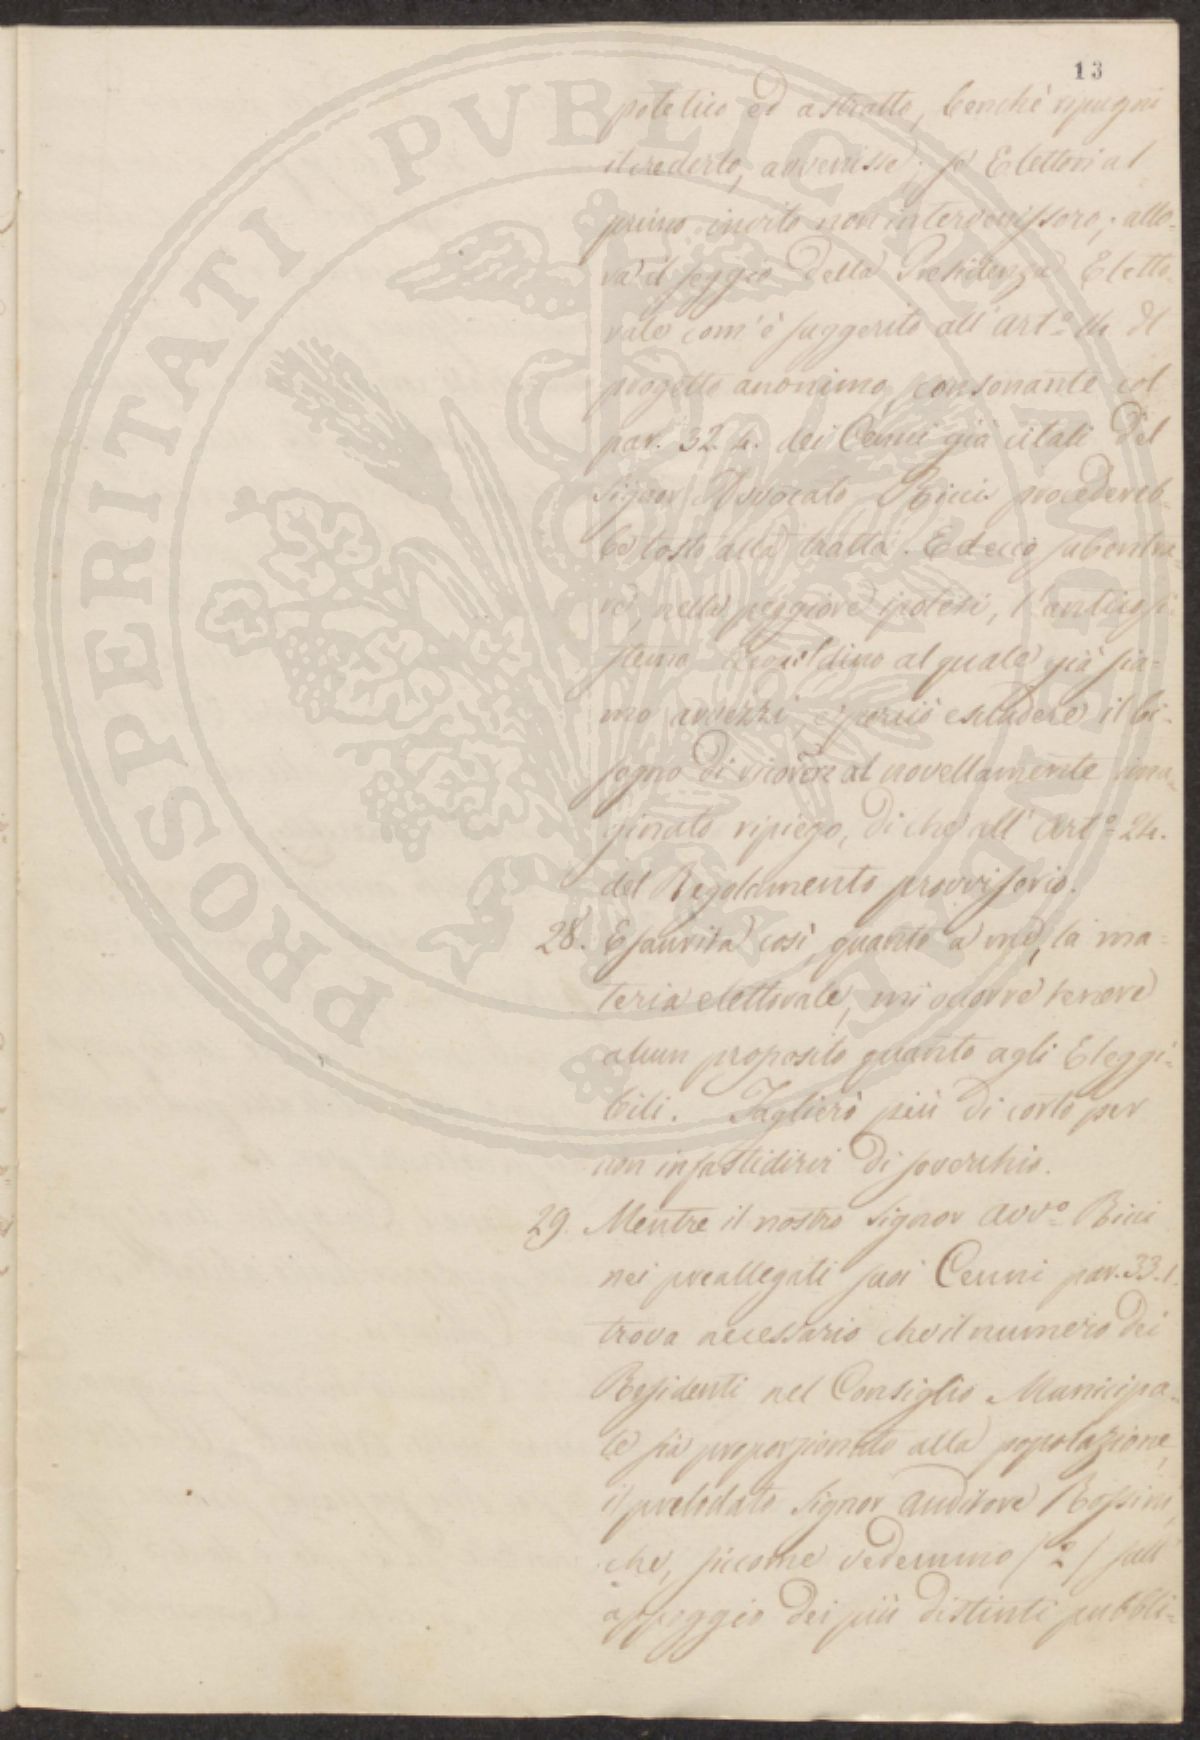 13
potetico ed astratto, benchè ripugni
il crederlo, avvenisse; se Elettori al
primo invito non intervenissero; allo-
ra il seggio della Presidenza Eletto-
rale com'è suggerito all'Artº 14 del
progetto anonimo, consonante col
par. 32.4. dei Cenni già citati del
Signor Avvocato Ricci procedereb-
be tosto alla tratta. Ed ecco subentra-
re, nella peggiore ipotesi, l'antico si-
stema Leopoldino al quale già sia-
mo avvezzi, e perciò escludere il bi-
sogno di ricorrer al novellamente ima-
ginato ripiego, di che all'Artº 24.
del Regolamento provvisorio.
28. Esaurita così, quanto a me, la ma-
teria elettorale, mi occorre tenere
alcun proposito quanto agli Eleggi-
bili. Taglierò più di corto per
non infastidirvi di soverchio.
29. Mentre il nostro Signor Avvº Ricci
nei preallegati suoi Cenni par. 33.1.
trova necessario che il numero dei
Residenti nel Consiglio Municipa-
le sia proporzionato alla popolazione,
il prelodato Signor Auditore Rossini,
che, siccome vedemmo (º) sull'
appoggio dei più distinti pubbli-
PROSPERITATI PUBLICAE AUGENDAE